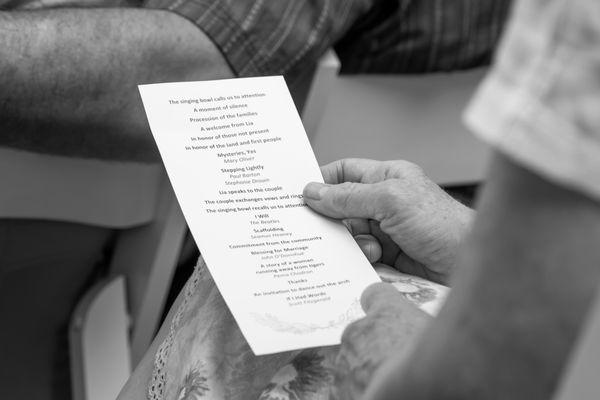 The singing bowl calls us to attention
A moment of silence
Procession of the families
A welcome from Lia
In honor of those not present
In honor of the land and first people
Mysteries, Yes
Mary Oliver
Stepping Lightly
Paul Barton
Stephanie Drouin
Lia speaks to the couple
The couple exchanges vows and rings
The singing bowl recalls us to attention
I Will
The Beatles
Scaffolding
Seamus Heaney
Commitment from the community
Blessing for Marriage
John O'Donohue
A story of a woman
running away from tigers
Pema Chodron
Thanks
An invitation to dance out the
If I Had Words
Scott Fitzgerald